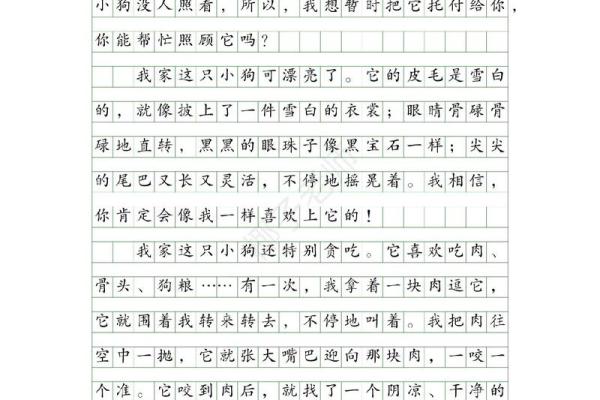 小狗没人照看，所以，我想暂时把它托付给你，
你能帮忙照顾它吗？
我家这只小狗可漂亮了。它的皮毛是雪白
的，就像披上了一件雪白的衣裳；眼睛骨碌骨
碌地直转，黑黑的眼珠子像黑宝石一样；尖尖
的尾巴又长又灵活，不停地摇晃着。我相信，
你肯定会像我一样喜欢上它的！
我家这只小狗还特别贪吃。它喜欢吃肉、
骨头、狗粮……有一次，我拿着一块肉逗它，
它就围着我转来转去，不停地叫着。我把肉往
空中一抛，它就张大嘴巴迎向那块肉，一咬一
个准。它咬到肉后，就找了一个阴凉、干净的